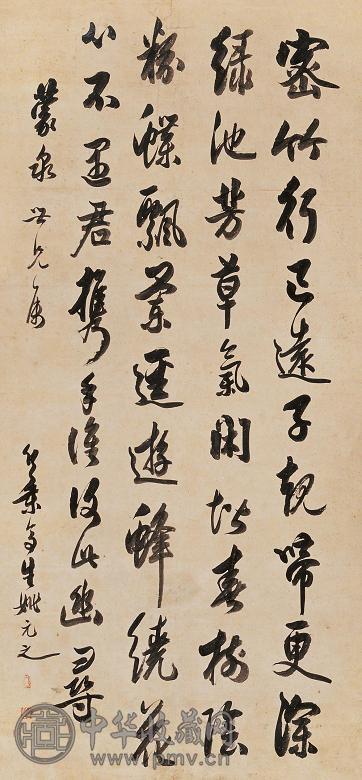 密竹行已遠子規啼更深
綠池芳草氣閑堦春樹陰
粉蝶飄蘭逕遊蜂繞花
心不遇君攜手誰復此幽尋
蒙泉世兄屬
竹葉亭生姚元之
中华收藏网
www.pmv.cn